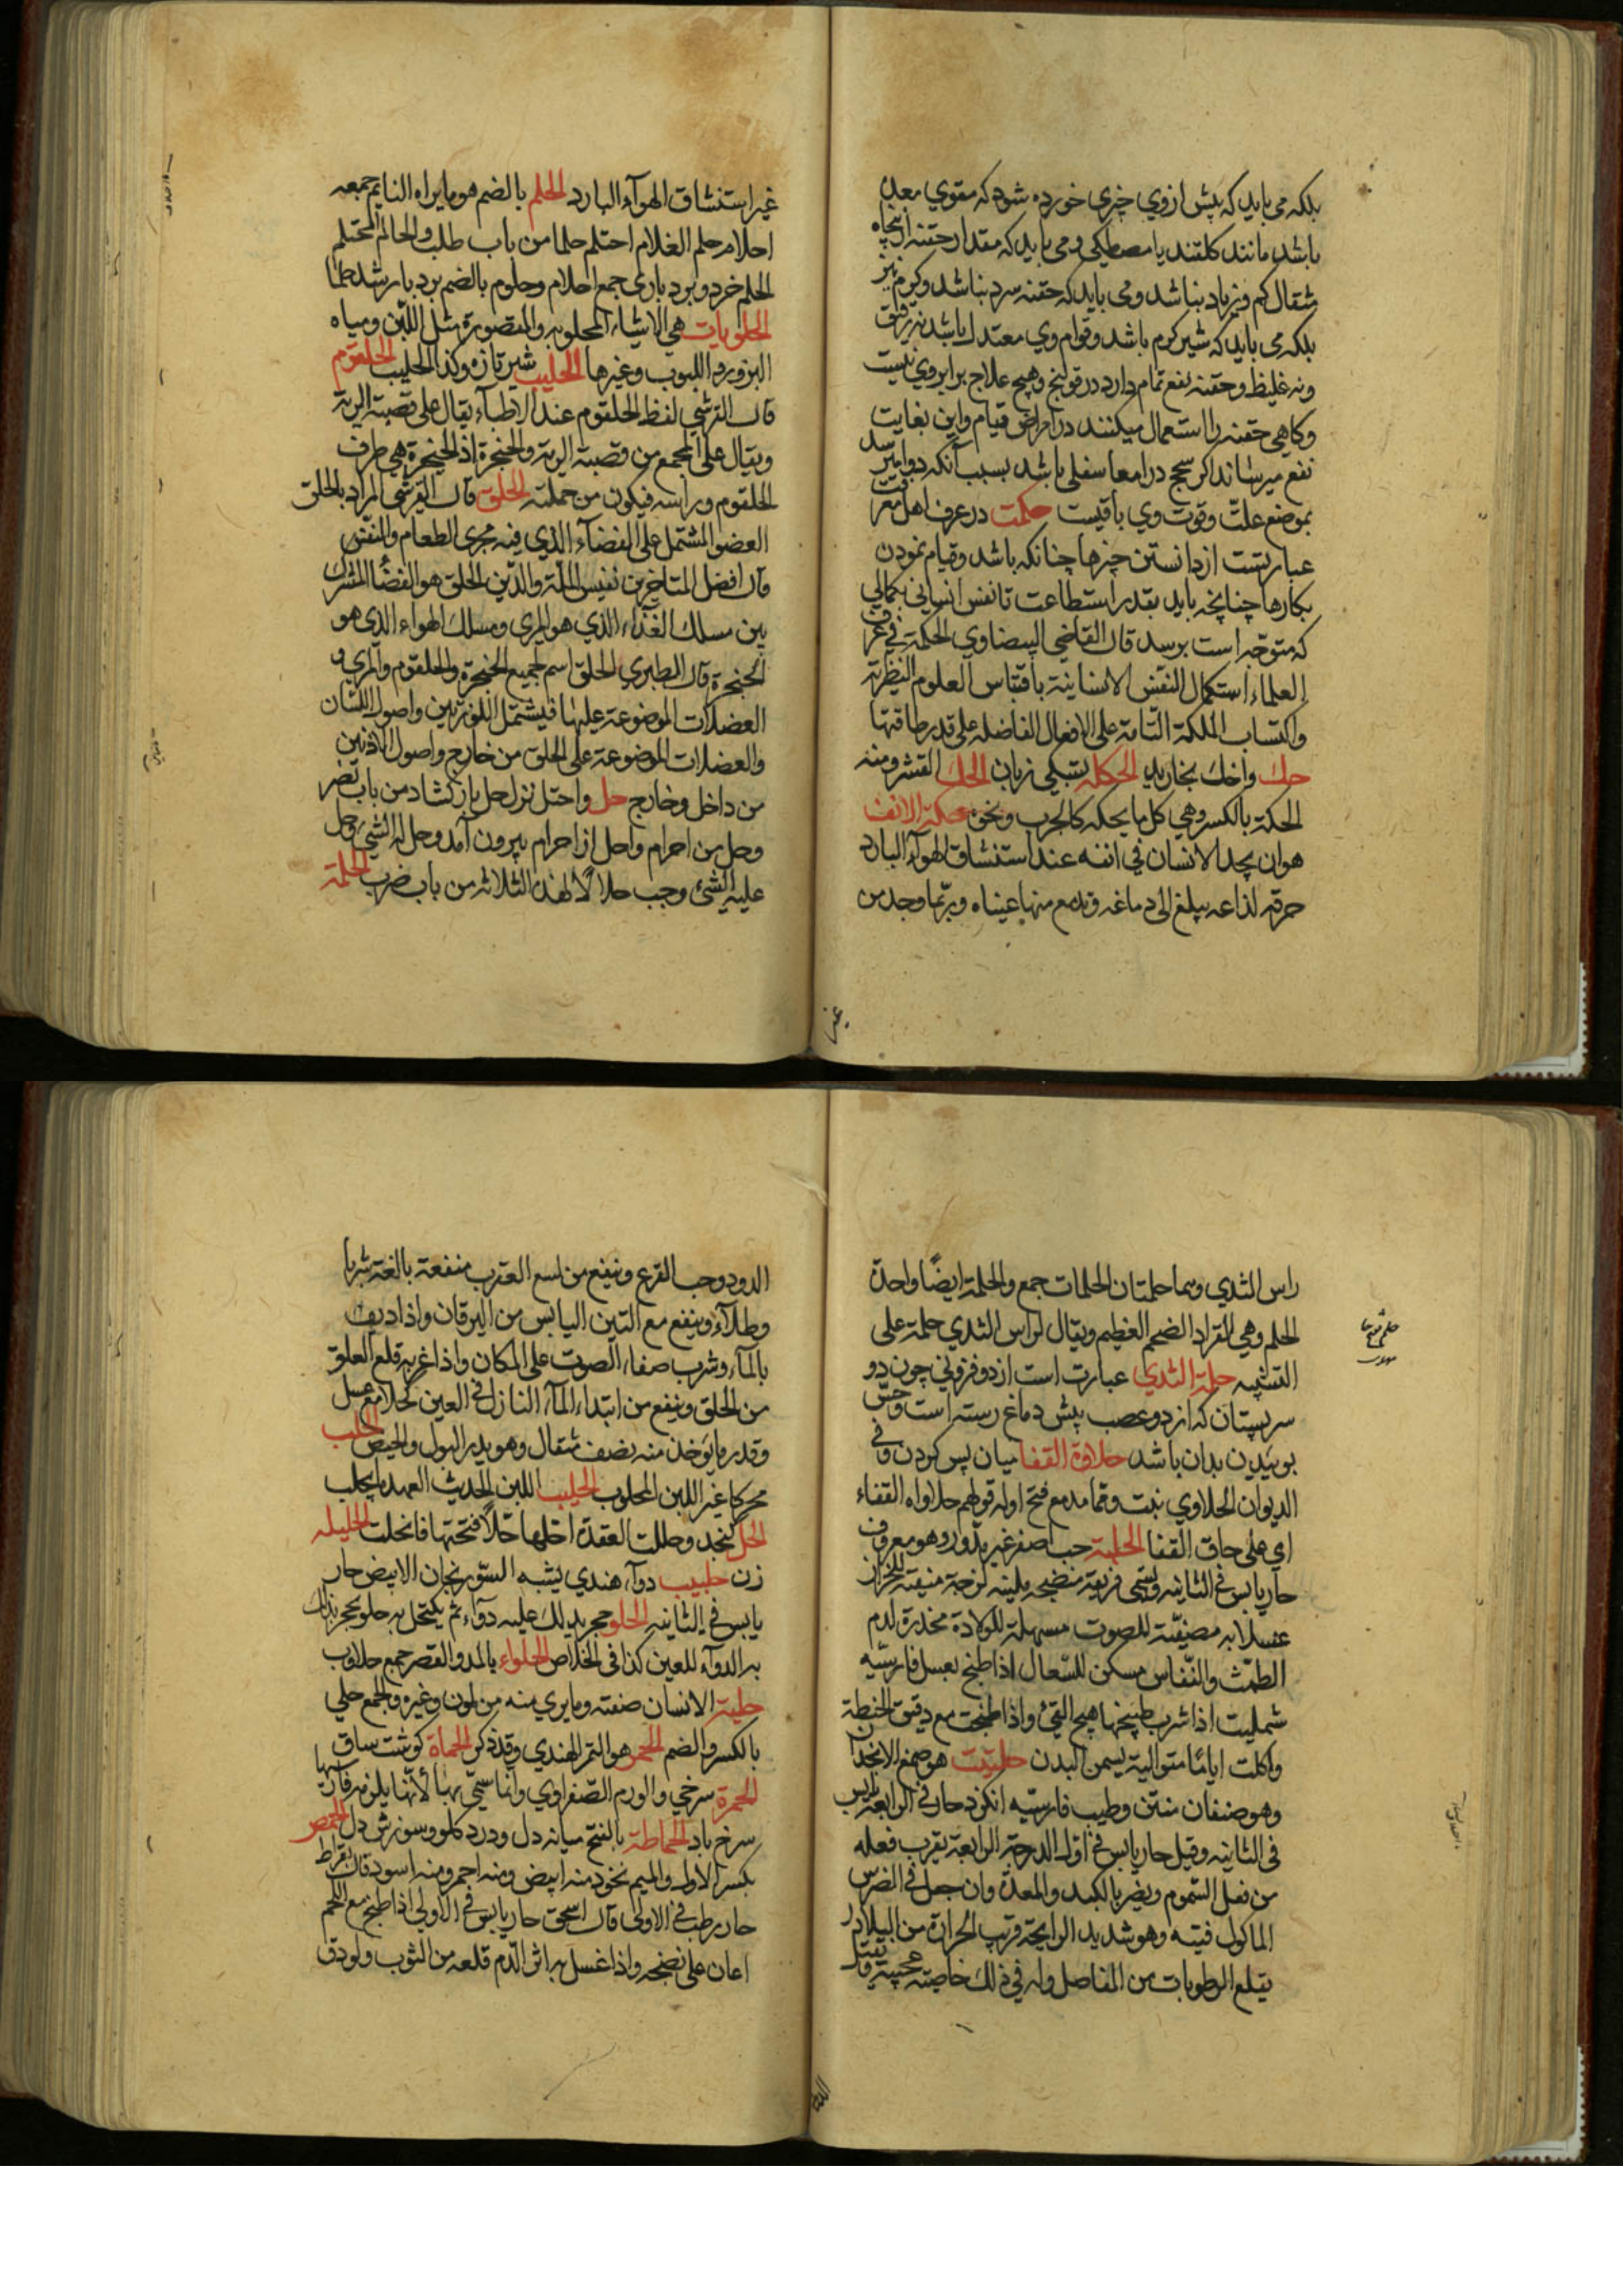 بلکه می باید که پیش ازوی چیزی خورده شود که مقوی معده
باشد مانند کلقند یا مصطیکی و می باید که مقدار حقنه از پنجاه
مثقال کم و زیاد نباشد و می باید که حقنه سرد نباشد و کرم نیز
بلکه می باید که شیر کرم باشد و قوام وی معتدل باشد نه رقیق
ونه غلیظ و حقنه نفع تمام دارد در قولنج و هیچ علاج برابر وی نیست
وکاهی حقنه را استعمال میکنند در امراض قیام واین بغایت
نفع میرساند اکر سحج در امعا سفلی باشد بسبب آنکه دوا میرسد
بموضع علت وقوت وی باقیست حکمت در عرف اهل معرفت
عبارتست از دانستن چیزها چنانکه باشد وقیام نمودن
بکارها چنانچه باید بقدر استطاعت تا نفس انسانی بکمالی
که متوجه است برسد قال القاضی البیضاوی الحکمة فی عرف
العلماء استکمال النفس الانسانیة باقتباس العلوم النظریة
واکتساب الملکة التامة علی الافعال الفاضله علی قدر طاقتها
حك واخك بخارید الحکله بستکی زبان الحك القشر ومنه
الحکة بالکسر وهی کل ما یحکه کالجرب ونحوه حکة الانف
هو ان یجد الانسان فی انفه عند استنشاق الهوآء البارد
حرقة لذاعه یبلغ الی دماغه وتدمع منها عیناه وربما وجد من
غیر
غیر استنشاق الهوآء البارد الحلم بالضم هو ما یراه النایم جمعه
احلام حلم الغلام احتلم حلما من باب طلب والحالم المحتلم
الحلم خرد وبرد باری جمع احلام وحلوم بالضم برد بار شد حلما
الحلوبات هی الاشیاء المحلوبه والمقصورة مثل اللبن ومیاه
البزور و اللبوب وغیرها الحلیب شیر تازه وکذا الحلیب الحلقوم
قال القرشی لفظ الحلقوم عند الاطبآء یقال علی قصبة الریة
ویقال علی المجمع من قصبة الریة والحنجرة اذ الحنجرة هی طرف
الحلقوم وراسه فیکون من جملته الحلق قال القرشی المراد بالحلق
العضو المشتمل علی الفضآء الذی فیه مجری الطعام والنفس
قال افضل المتاخرین نفیس الملة والدین الحلق هو الفضأ المشترك
بین مسلك الغذاء الذی هو المری ومسلك الهواء الذی هو
الحنجرة قال الطبری الحلق اسم لجمیع الحنجرة والحلقوم والمری و
العضلات الموضوعة علیها فیشتمل اللوزتین واصول اللسان
والعضلات الموضوعة علی الحلق من خارج واصول الاذنین
من داخل وخارج حل واحتل نزل حل باز کشاد من باب نصر
وحل من احرام واحل از احرام بیرون آمد وحل له الشیء وحل
علیه الشیٔ وجب حلالًا لهذه الثلاثه من باب ضرب الحلمة
راس الثدی وهما حلمتان الحلمات جمع والحلمة ایضًا واحدة
الحلم وهی القراد الضخم العظیم ویقال لراس الثدی حلمة علی
التشبیه حلمة الثدی عبارت است از دو فزونی چون دو
سر پستان که از دو عصب پیش دماغ رسته است وحس
بوئیدن بدان باشد حلاوة القفا میان پس کردن وفی
الدیوان الحلاوی نبت وقما مد مع فتح اوله قولهم حلاواه القفاء
ای علی حاق القفا الحلبة حب اصفر غیر مدور وهو معروف
حار یابس فی الثانیه ویسمی فریقه منضجه ملینه لزجة منقیة للحزاز
غسلا به مصفیة للصوت مسهلة للولادة مخدرة لدم
الطمث والنفاس مسکن للسعال اذا طبخ بعسل فارسیه
شملیت اذا شرب طبیخها هیج القیٔ واذا طبخت مع دقیق الحنطة
واکلت ایامًا متوالیة یسمن البدن حلتیت هو صمغ الانجدان
وهو صنفان منتن وطیب فارسیه انکزد حار فی الرابعة یابس
فی الثانیه وقیل حار یابس فی اول الدرجة الرابعة یقرب فعله
من فعل السموم ویضر بالکبد والمعدة وان جعل فی الضرس
الماکول فتته وهو شدید الرایحة قریب الحرارة من البلادر
یقلع الرطوبات من المفاصل وله فی ذلك خاصیة عجیبة ویقتل
الدود
الدود وحب القرع وینفع من لسع العقرب منفعة بالغة شربا
وطلآء وینفع مع التین الیابس من الیرقان واذا دیف
بالمآء وشرب صفاء الصوت علی المکان واذا غرغر به قلع العلق
من الحلق وینفع من ابتداء المآء النازل فی العین کحلا مع عسل
وقدر ما یؤخذ منه نصف مثقال وهو یدر البول والحیض الحلب
محرکا غیر اللبن المحلوب الحلیب اللبن الحدیث العهد بالحلب
الحل کنجد وحللت العقدة احلها حلًا فتحتها فانحلت الحلیله
زن حلبیب دوآء هندی یشبه السورنجان الابیض حار
یابس فی الثانیه الحلو حجر یدلك علیه دوآء ثم یکتحل به حلو بحجر یدلك
به الدوآء للعین کذا فی الخلاص الحلواء بالمد والقصر جمع حلاوی
حلیة الانسان صفته وما یری منه من لون وغیره والجمع حلی
بالکسر والضم الحمر هو التمر الهندی وقد ذکر الحماة کوشت ساق
الحمرة سرخی والورم الصفراوی وانما سمی بها لأنها یلزمه فارسیها
سرخ باد الحماطة بالفتح میانه دل و درد کلو و سوزش دل الحمص
بکسر الاول والمیم نخود منه ابیض ومنه احمر ومنه اسود قال بقراط
حار رطب فی الاولی قال اسحق حار یابس فی الاولی اذا طبخ مع اللحم
اعان علی نضجه واذا غسل به اثر الدم قلعه من الثوب ولو دق